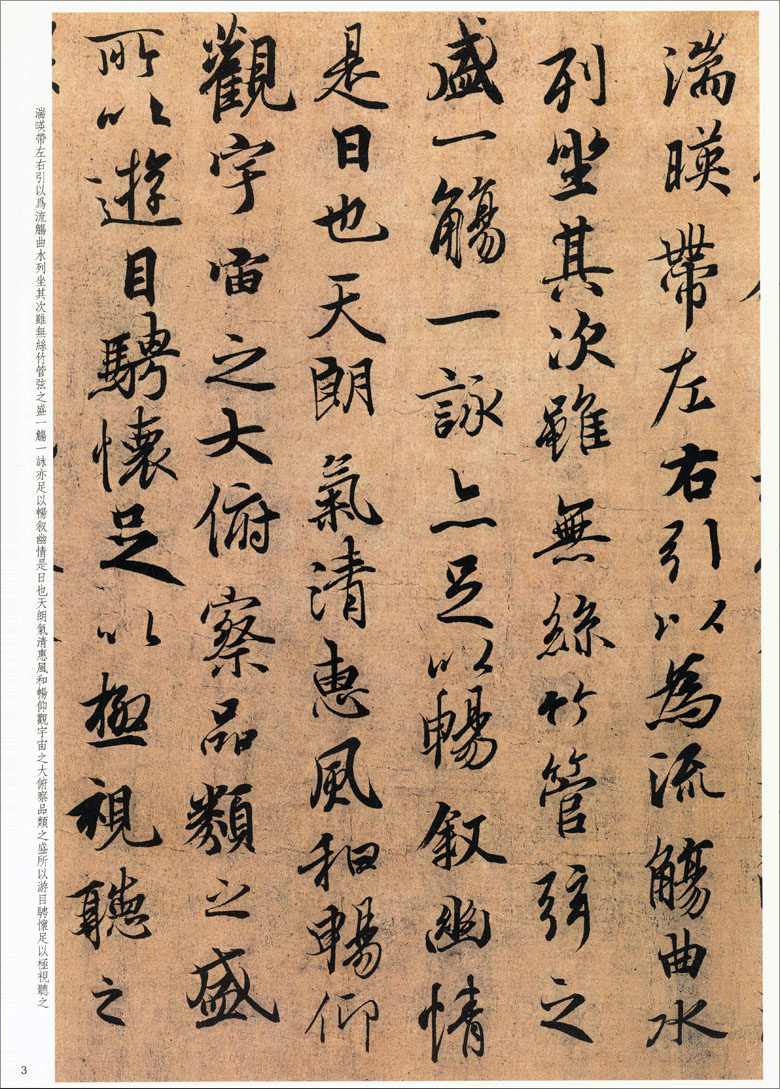 湍暎帶左右引以為流觴曲水
列坐其次雖無絲竹管弦之
盛一觴一詠亦足以暢叙幽情
是日也天朗氣清惠風和暢仰
觀宇宙之大俯察品類之盛
所以遊目騁懷足以極視聽之
湍暎帶左右引以爲流觴曲水列坐其次雖無絲竹管弦之盛一觴一詠亦足以暢叙幽情是日也天朗氣清惠風和暢仰觀宇宙之大俯察品類之盛所以游目騁懷足以極視聽之
3